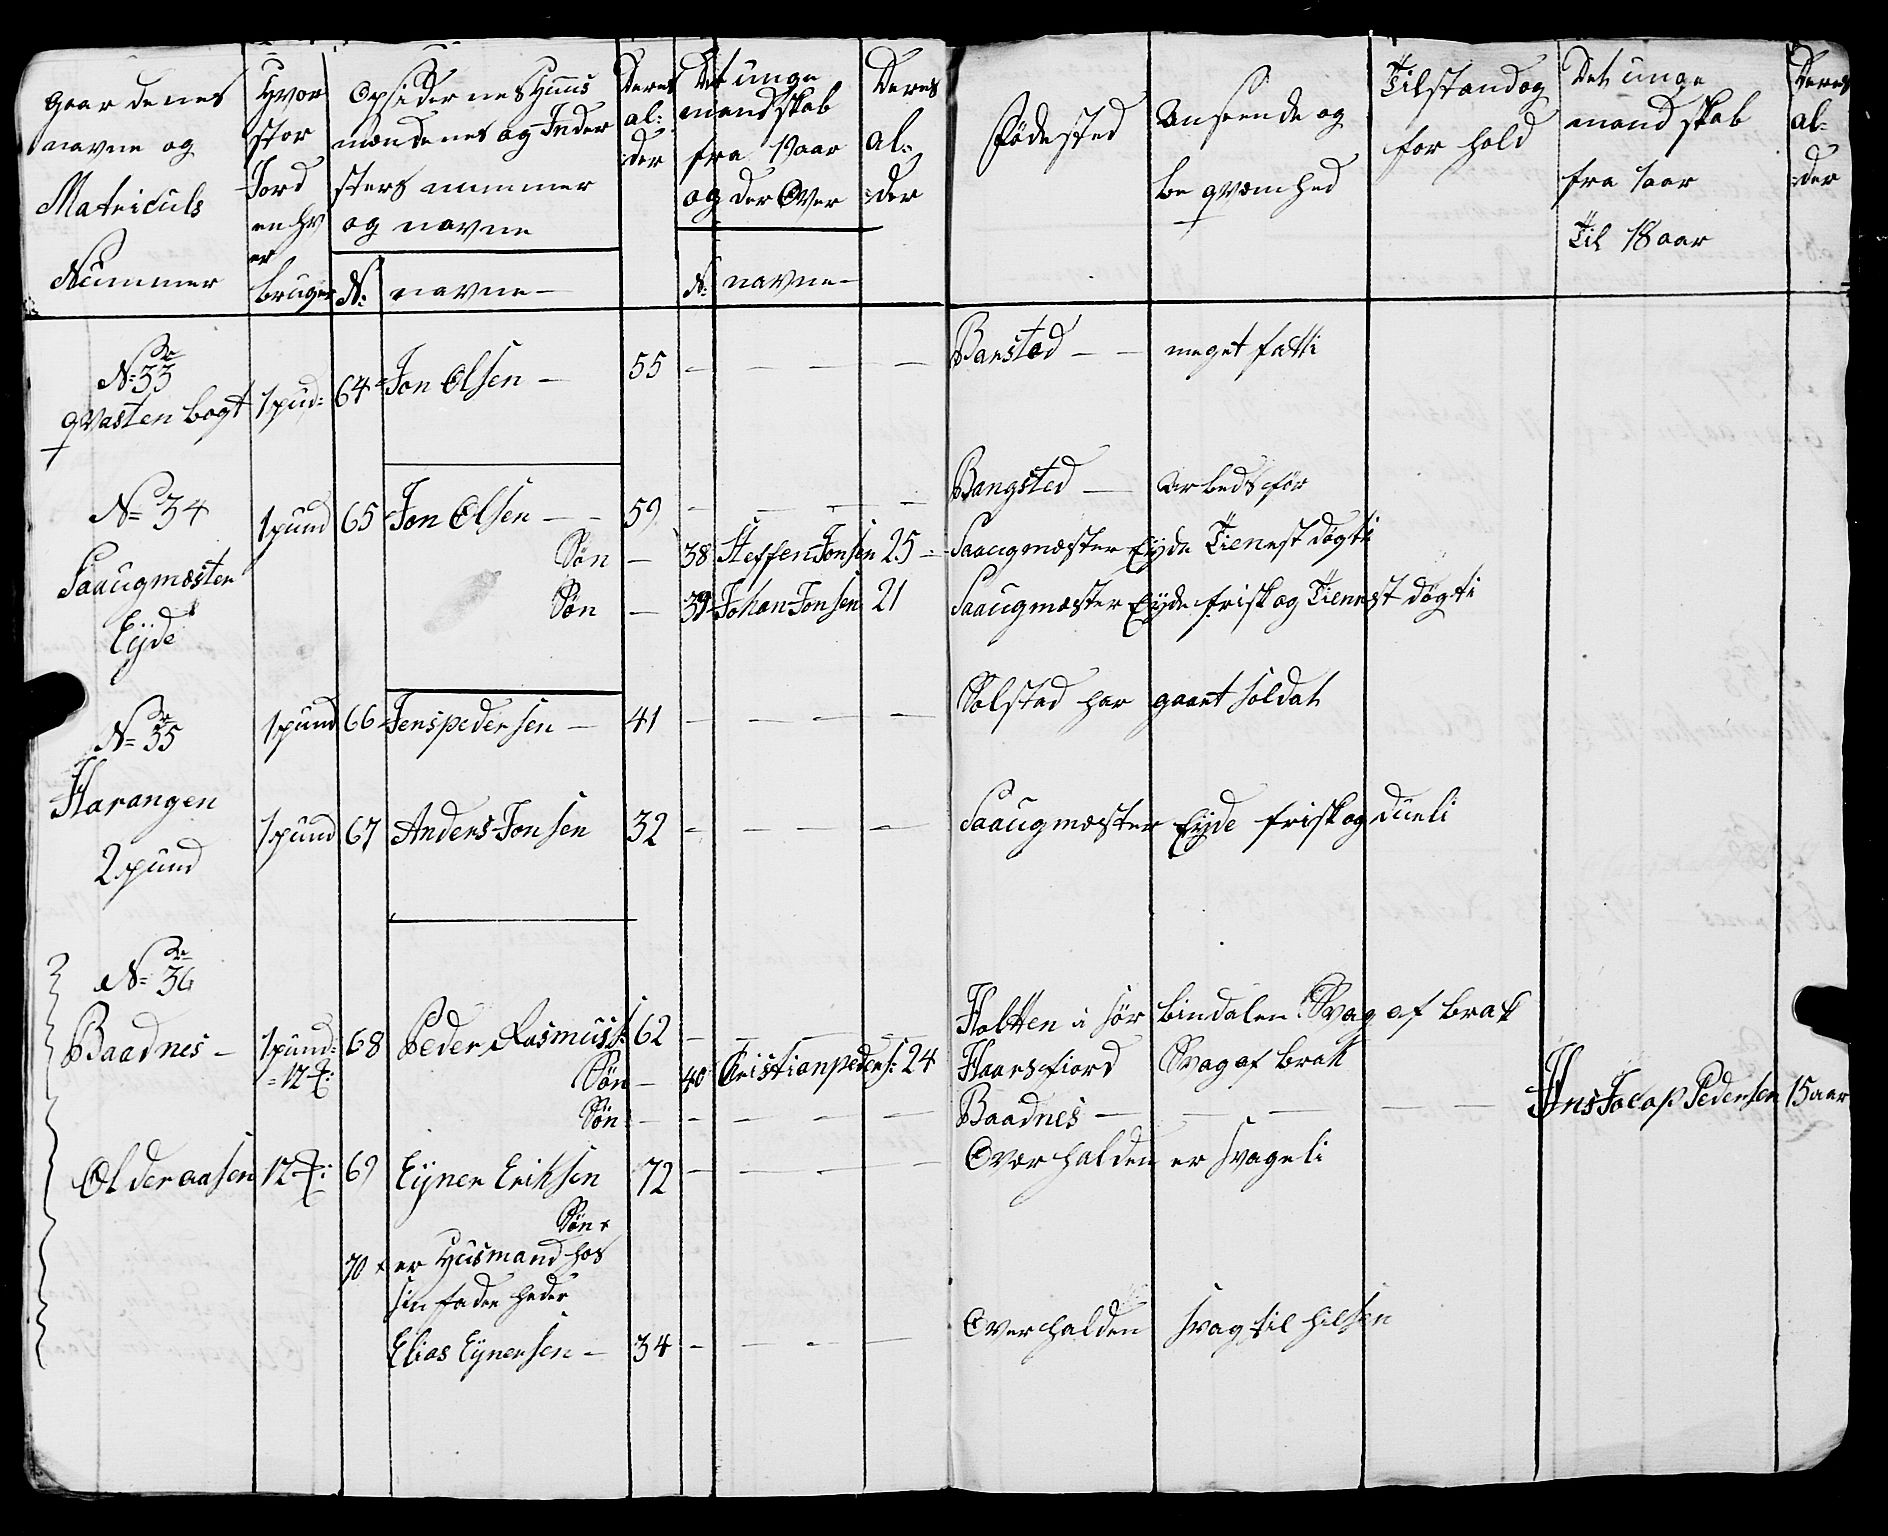 gaardenes navne og Matriculs Nummer
Hvor stor Jord en hver bruger
Opsidernes Huus mændenes og Inder sters nummer og navne
N: navne
Deres al: der
Det unge mandskab fra 1 aar og der Over
N: navne
Deres al: der
Fødested
Anseende og be qvæmhed
Tilstand og for hold
Det unge mand skab fra 1 aar Til 18 aar
Deres al: der
N: 33 qvasten bogt 1 pud: 64 Jon Olsen — 55 — — — — Banstad — — meget fatti
N= 34 Saaugmæster Eyde 1 pund 65 Jon Olsen — — 59 — — — — Bangsted — arbeds før
Søn — 38 Steffen Jonsen 25 — Saaugmæster Eyde Tienest døgti
Søn — 39 Johan Jonsen 21 Saaugmæster Eyde frisk og Tienest døgti
N= 35 Harangen 2 pund 1 pund 66 Jens pedersen — 41 — — — — Solstad har gaaet soldat
1 pund 67 Anders Jonsen 32 — — — — Saaugmæster Eyde frisk og dueli
N= 36
Baadnes — 1 pund: = 12 : 68 Peder Rasmuss: 62 — — — — Holtten i sør bindalen Svag af brak
Søn — 40 Cristian peders: 24 Haarsfiord Svag af brak
Søn: — — — — — Baadnes — — — — — Hns Jacap Pedersen 15 aar
Olderaasen 12 : 69 Eyner Eriksen 72 — — — — Overhalden er svageli
Søn +
70 + er Husmand hos
sin fader heder
Elias Eynersen — 34 — — — — Overhalden svag til hilsen